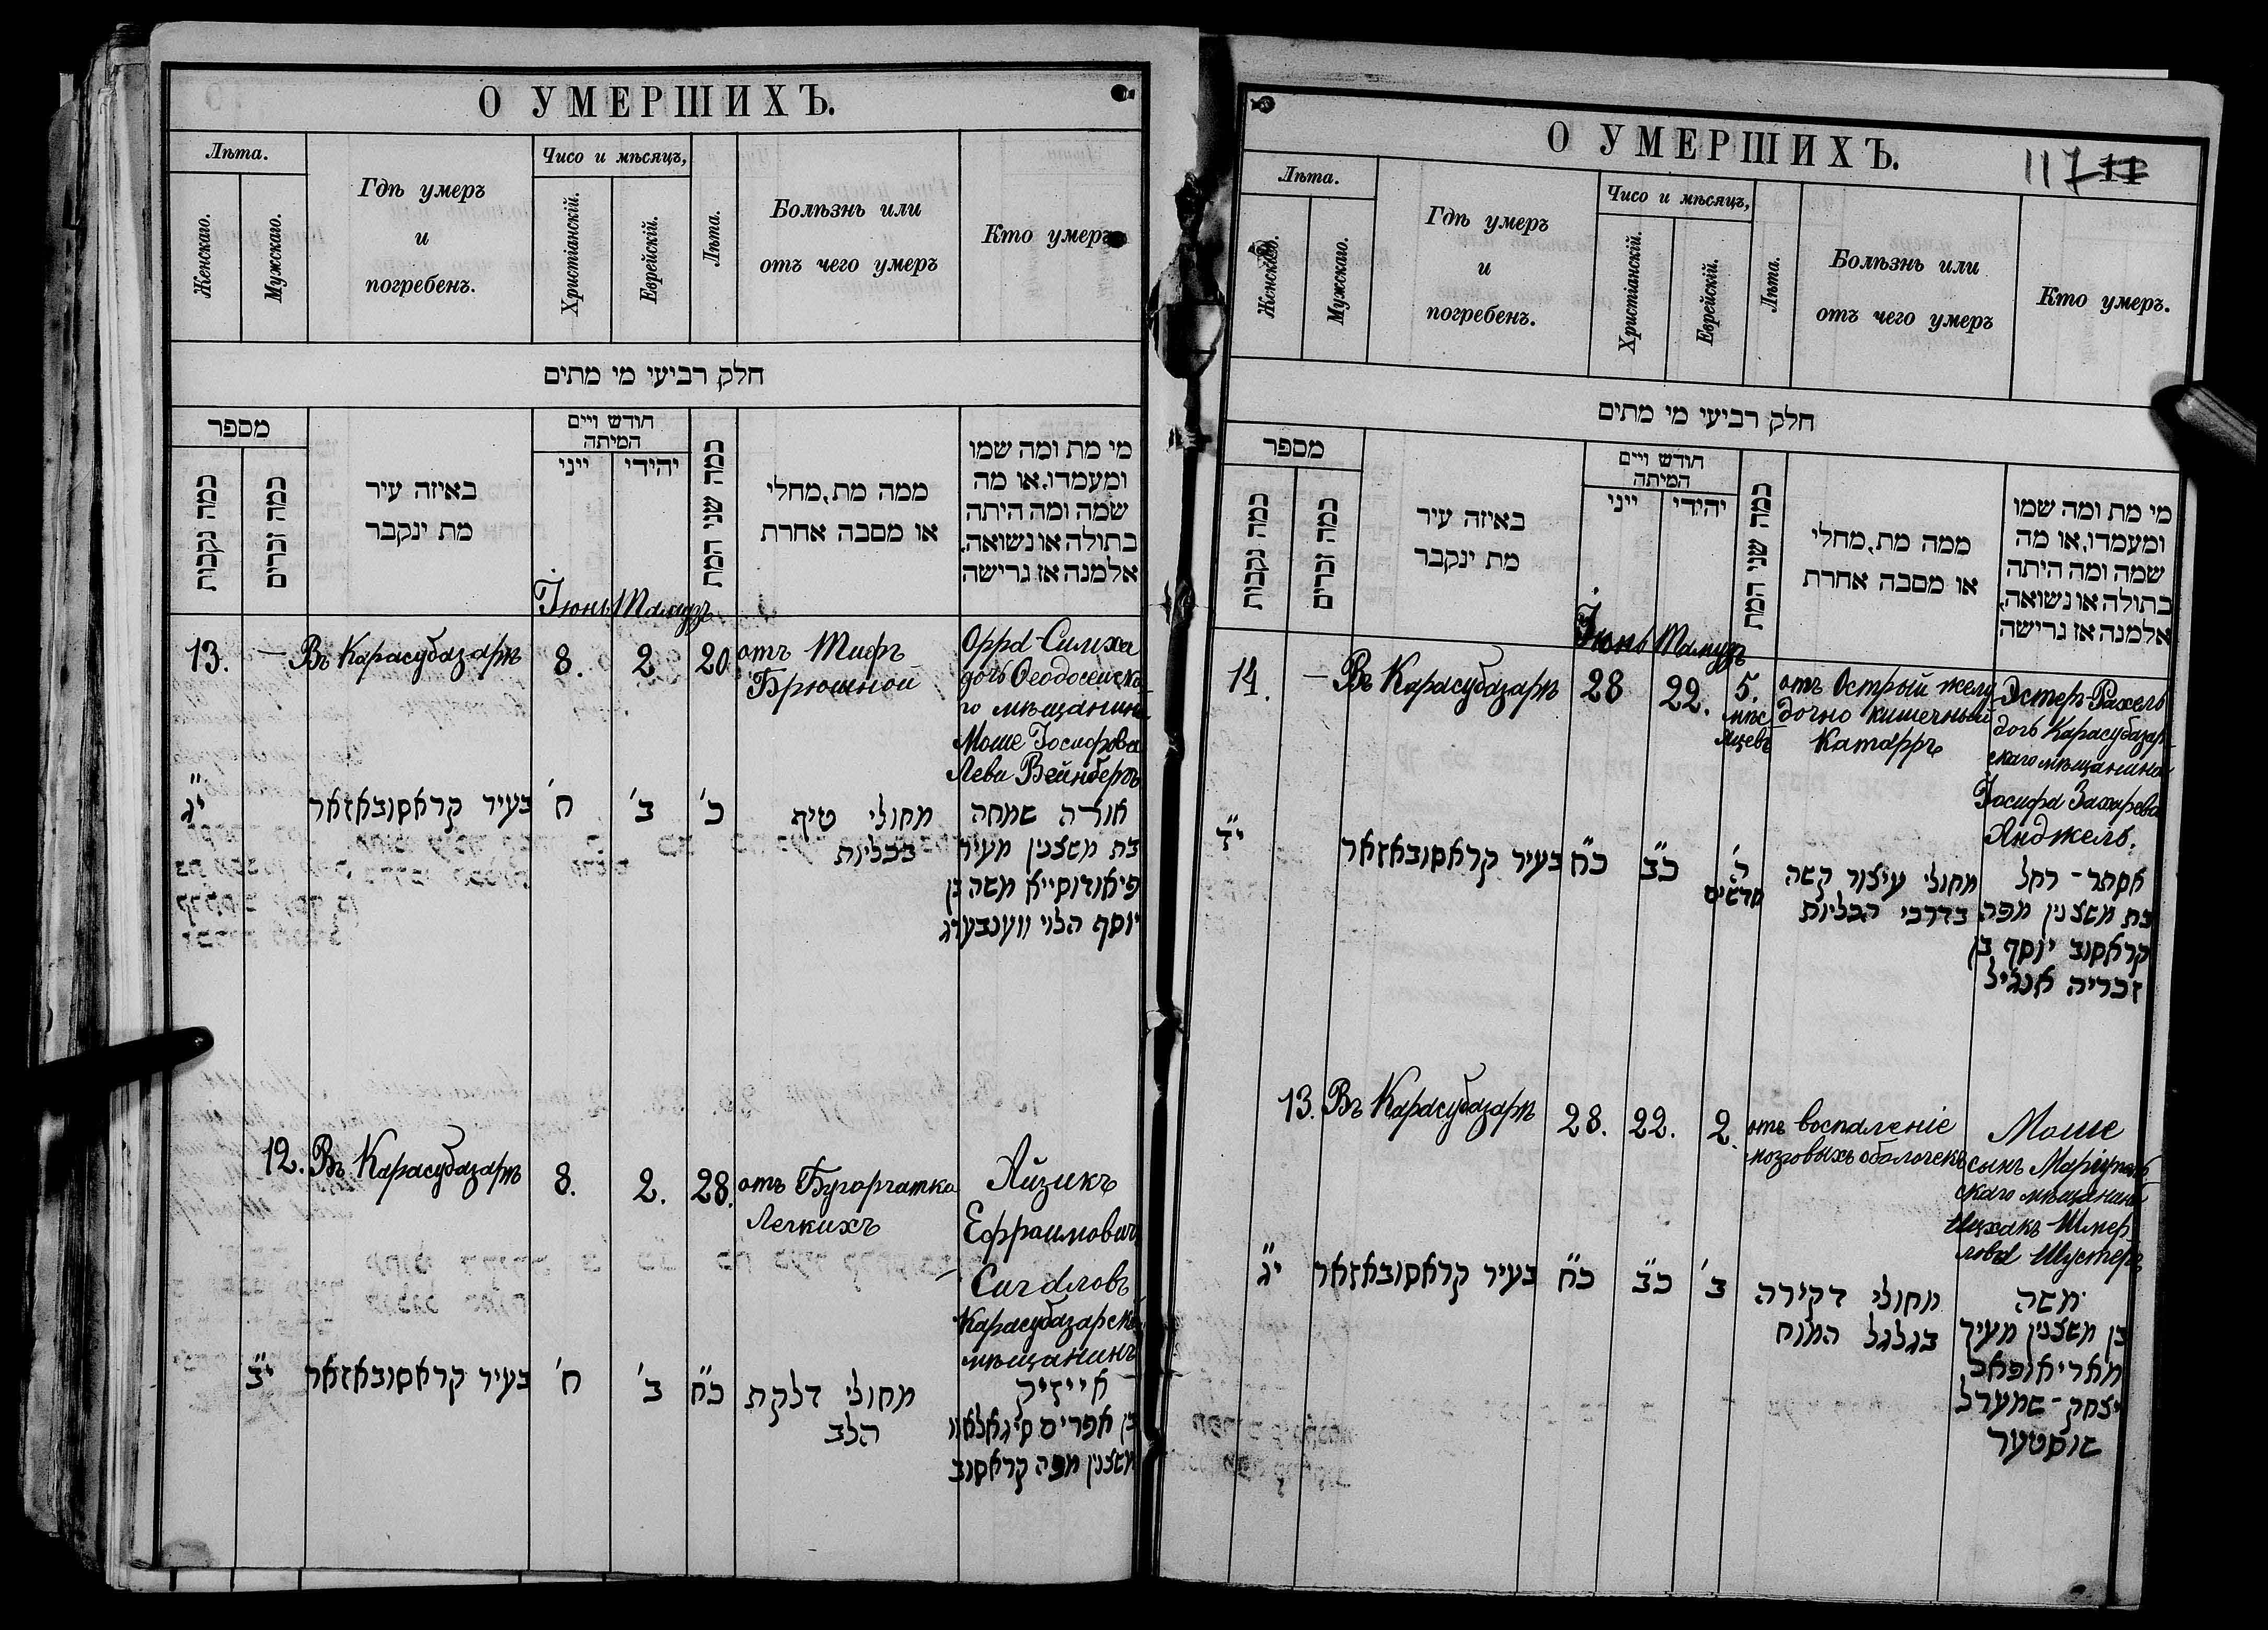 О УМЕРШИХЪ.
Лѣта.
Женскаго.
Мужскаго.
Гдѣ умеръ
и
погребенъ.
Чисо и мѣсяцъ,
Христіанскій.
Еврейскій.
Лѣта.
Болѣзнь или
отъ чего умеръ
Кто умеръ
חלק רביעי מי מתים
מספר
כמה נקבות
כמה זכרים
באיזה עיר
מת ינקבר
חודש ויים
המיתה
ייני
יהידי
כמה שני המת
ממה מת, מחלי
או מסבה אחרת
מי מת ומה שמו
ומעמדו, או מה
שמה ומה היתה
בתולה או נשואה,
אלמנה אז גרישה
Іюнь Тамузъ
13. — Въ Карасубазарѣ 8. 2 20
отъ Тифъ
Брюшной
Орра-Симха
дочь Ѳеодосейска
го мѣщанина
Моше Іосифова
Леви Вейнбергъ
י"ג
בעיר קראסובאזאר ח' ב' כ'
מחולי טיף
בבליות
אורה שמחה
בת משצנין מעיר
פיאודוסייא משה בן
יוסף הלוי וועגבערג
12. Въ Карасубазарѣ 8. 2. 28.
отъ Бугорчатка
Легкихъ
Айзикъ
Ефраимовичъ
Сигаловъ
Карасубазарскі
мѣщанинъ
י"ב בעיר קראסובאזאר ח' ב' כ"ח
מחולי דלקת
הלב
אייזיק
בן אפרים סיגאלאוו
משצנין מפה קראסוב
О УМЕРШИХЪ.
117 11
Лѣта.
Женскаго.
Мужскаго.
Гдѣ умеръ
и
погребенъ.
Чисо и мѣсяцъ,
Христіанскій.
Еврейскій.
Лѣта.
Болѣзнь или
отъ чего умеръ
Кто умеръ.
חלק רביעי מי מתים
מספר
כמה נקבות
כמה זכרים
באיזה עיר
מת ינקבר
חודש ויים
המיתה
ייני
יהידי
כמה שני המת
ממה מת, מחלי
או מסבה אחרת
מי מת ומה שמו
ומעמדו, או מה
שמה ומה היתה
בתולה או נשואה,
אלמנה אז גרישה
Іюнь Тамузъ
14. — Въ Карасубазарѣ 28 22.
5.
мѣс
яцевъ
отъ Острый желу
дочно кишечный
катарръ
Эстеръ-Рахель
дочь Карасубазар
скаго мѣщанина
Іосифа Захарева
Анджель.
י"ד
בעיר קראסובאזאר כ"ח כ"ב
ה'
חדשים
מחולי עיצור קשה
בדרכי הבליות
אסתר - רחל
בת משצנין מפה
קראסוב יוסף בן
זכריה אנגיל
13. Въ Карасубазарѣ 28. 22. 2.
отъ воспаленіе
мозговыхъ оболочекъ
Моше
сынъ Маріуполь
скаго мѣщанина
Ицхакъ-Шмер
лова Шустеръ
י"ג בעיר קראסובאזאר כ"ח כ"ב ב'
מחולי דקירה
בגלגל המוח
משה
בן משצנין מעיר
מאריאופאל
יצחק-שמערל
שוסטער